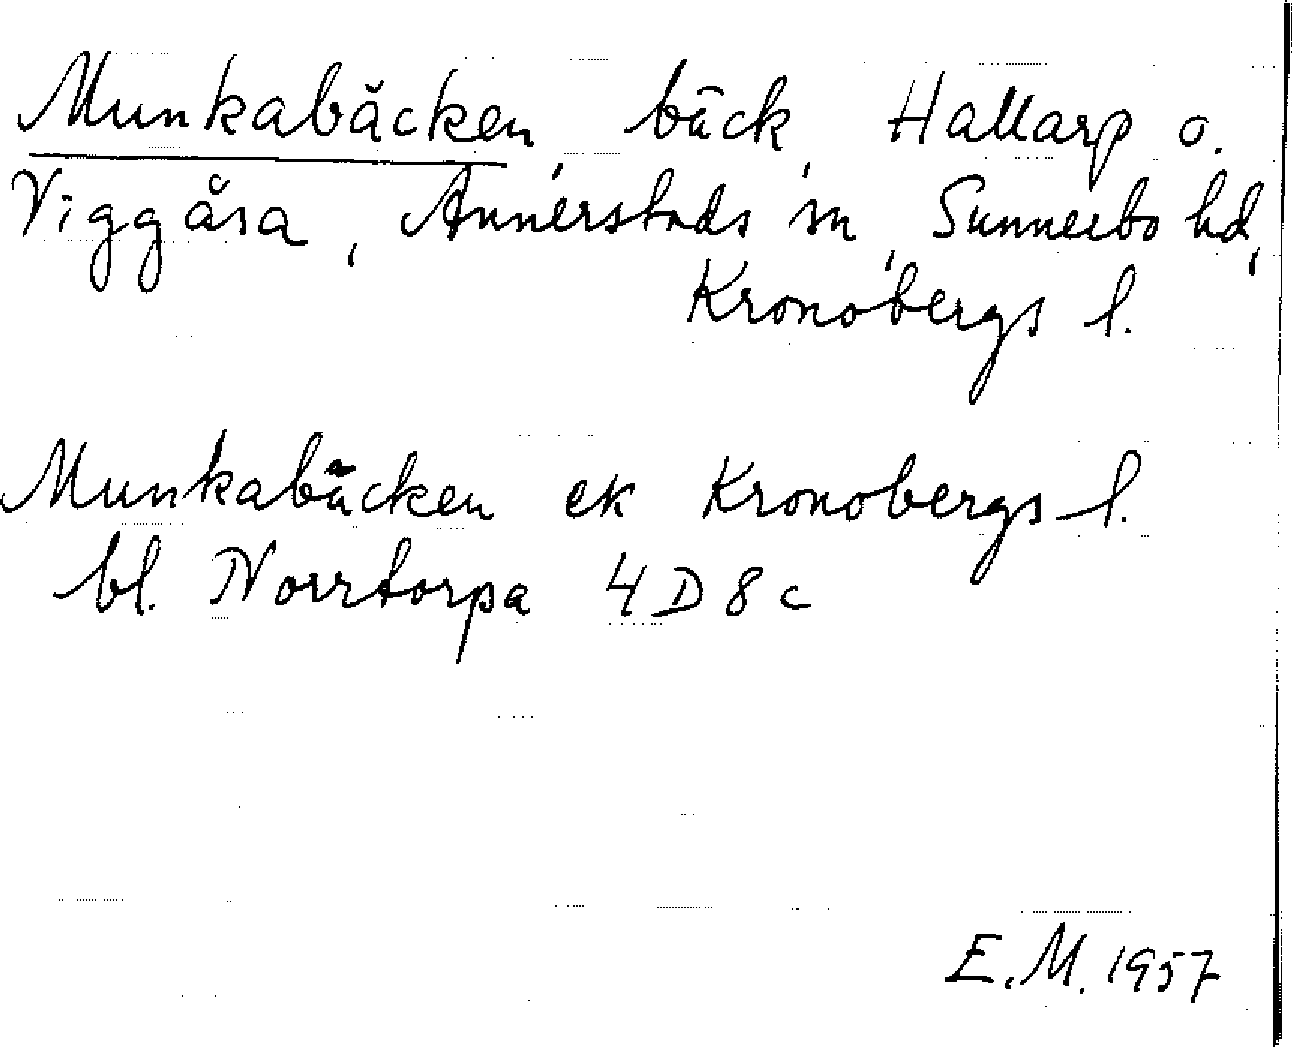 Munkabäcken, bäck, Hallarp o.
Viggåsa, Annerstads sn, Sunnerbo hd,
Kronobergs l.
Munkabäcken ek Kronobergs l.
bl. Norrtorpa 4D8c
E.M. 1957